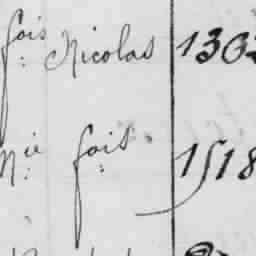 fois Nicolas 1302
Nie fois 1518